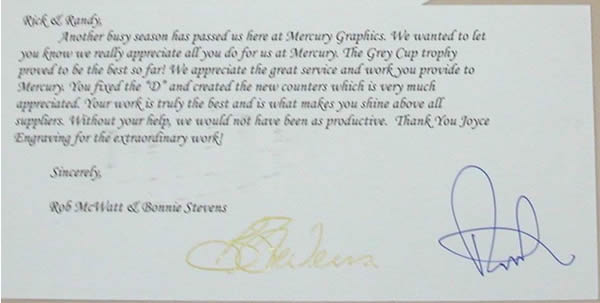 Rick & Randy,
Another busy season has passed us here at Mercury Graphics. We wanted to let
you know we really appreciate all you do for us at Mercury. The Grey Cup trophy
proved to be the best so far! We appreciate the great service and work you provide to
Mercury. You fixed the "D" and created the new counters which is very much
appreciated. Your work is truly the best and is what makes you shine above all
suppliers. Without your help, we would not have been as productive. Thank You Joyce
Engraving for the extraordinary work!
Sincerely,
Rob McWatt & Bonnie Stevens
B Stevens